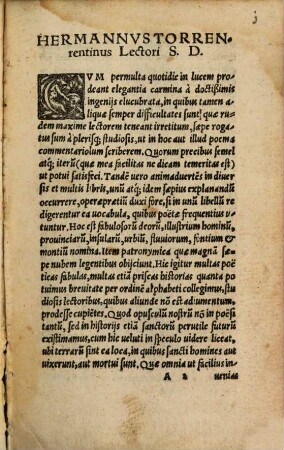 HERMANNVS TORREN⸗
rentinus Lectori S. D.
CVM permulta quotidie in lucem pro⸗
deant elegantia carmina à doctißimis
ingenijs elucubrata, in quibus tamen a⸗
liquæ semper difficultates sunt, quæ ru⸗
dem maxime lectorem teneant irretitum, sæpe roga⸗
tus sum à plerisq; studiosis, ut in hoc aut illud poema
commentariolum scriberem. Quorum precibus semel
atq; iterū (quæ mea facilitas ne dicam temeritas est)
ut potui satisfeci. Tandē uero animaduertēs in diuer⸗
sis et multis libris, unū atq; idem sæpius explanandū
occurrere, operæpretiū duxi fore, si in unū libellū re
digerentur ea uocabula, quibus poëtæ frequentius v⸗
tuntur. Hoc est fabulosorū deorū, illustrium hominū,
prouinciarū, insularū, urbiū, fluuiorum, fontium &
montiū nomina. Item patronymica quæ magnā sæ⸗
pe nubem legentibus obijciunt. Hic igitur multas poë
ticas fabulas, multas etiā priscas historias quanta po
tuimus breuitate per ordinē alphabeti collegimus, stu
diosis lectoribus, quibus aliunde nō est adiumentum,
prodesse cupiētes. Quod opusculū nostrū nō in poësi
tantū, sed in historijs etiā sanctorū perutile futurū
existimamus, cum hic ueluti in speculo uidere liceat,
ubi terrarū sint ea loca, in quibus sancti homines aut
uixerunt, aut mortui sunt. Quæ omnia ut facilius in⸗
A 2 uenias